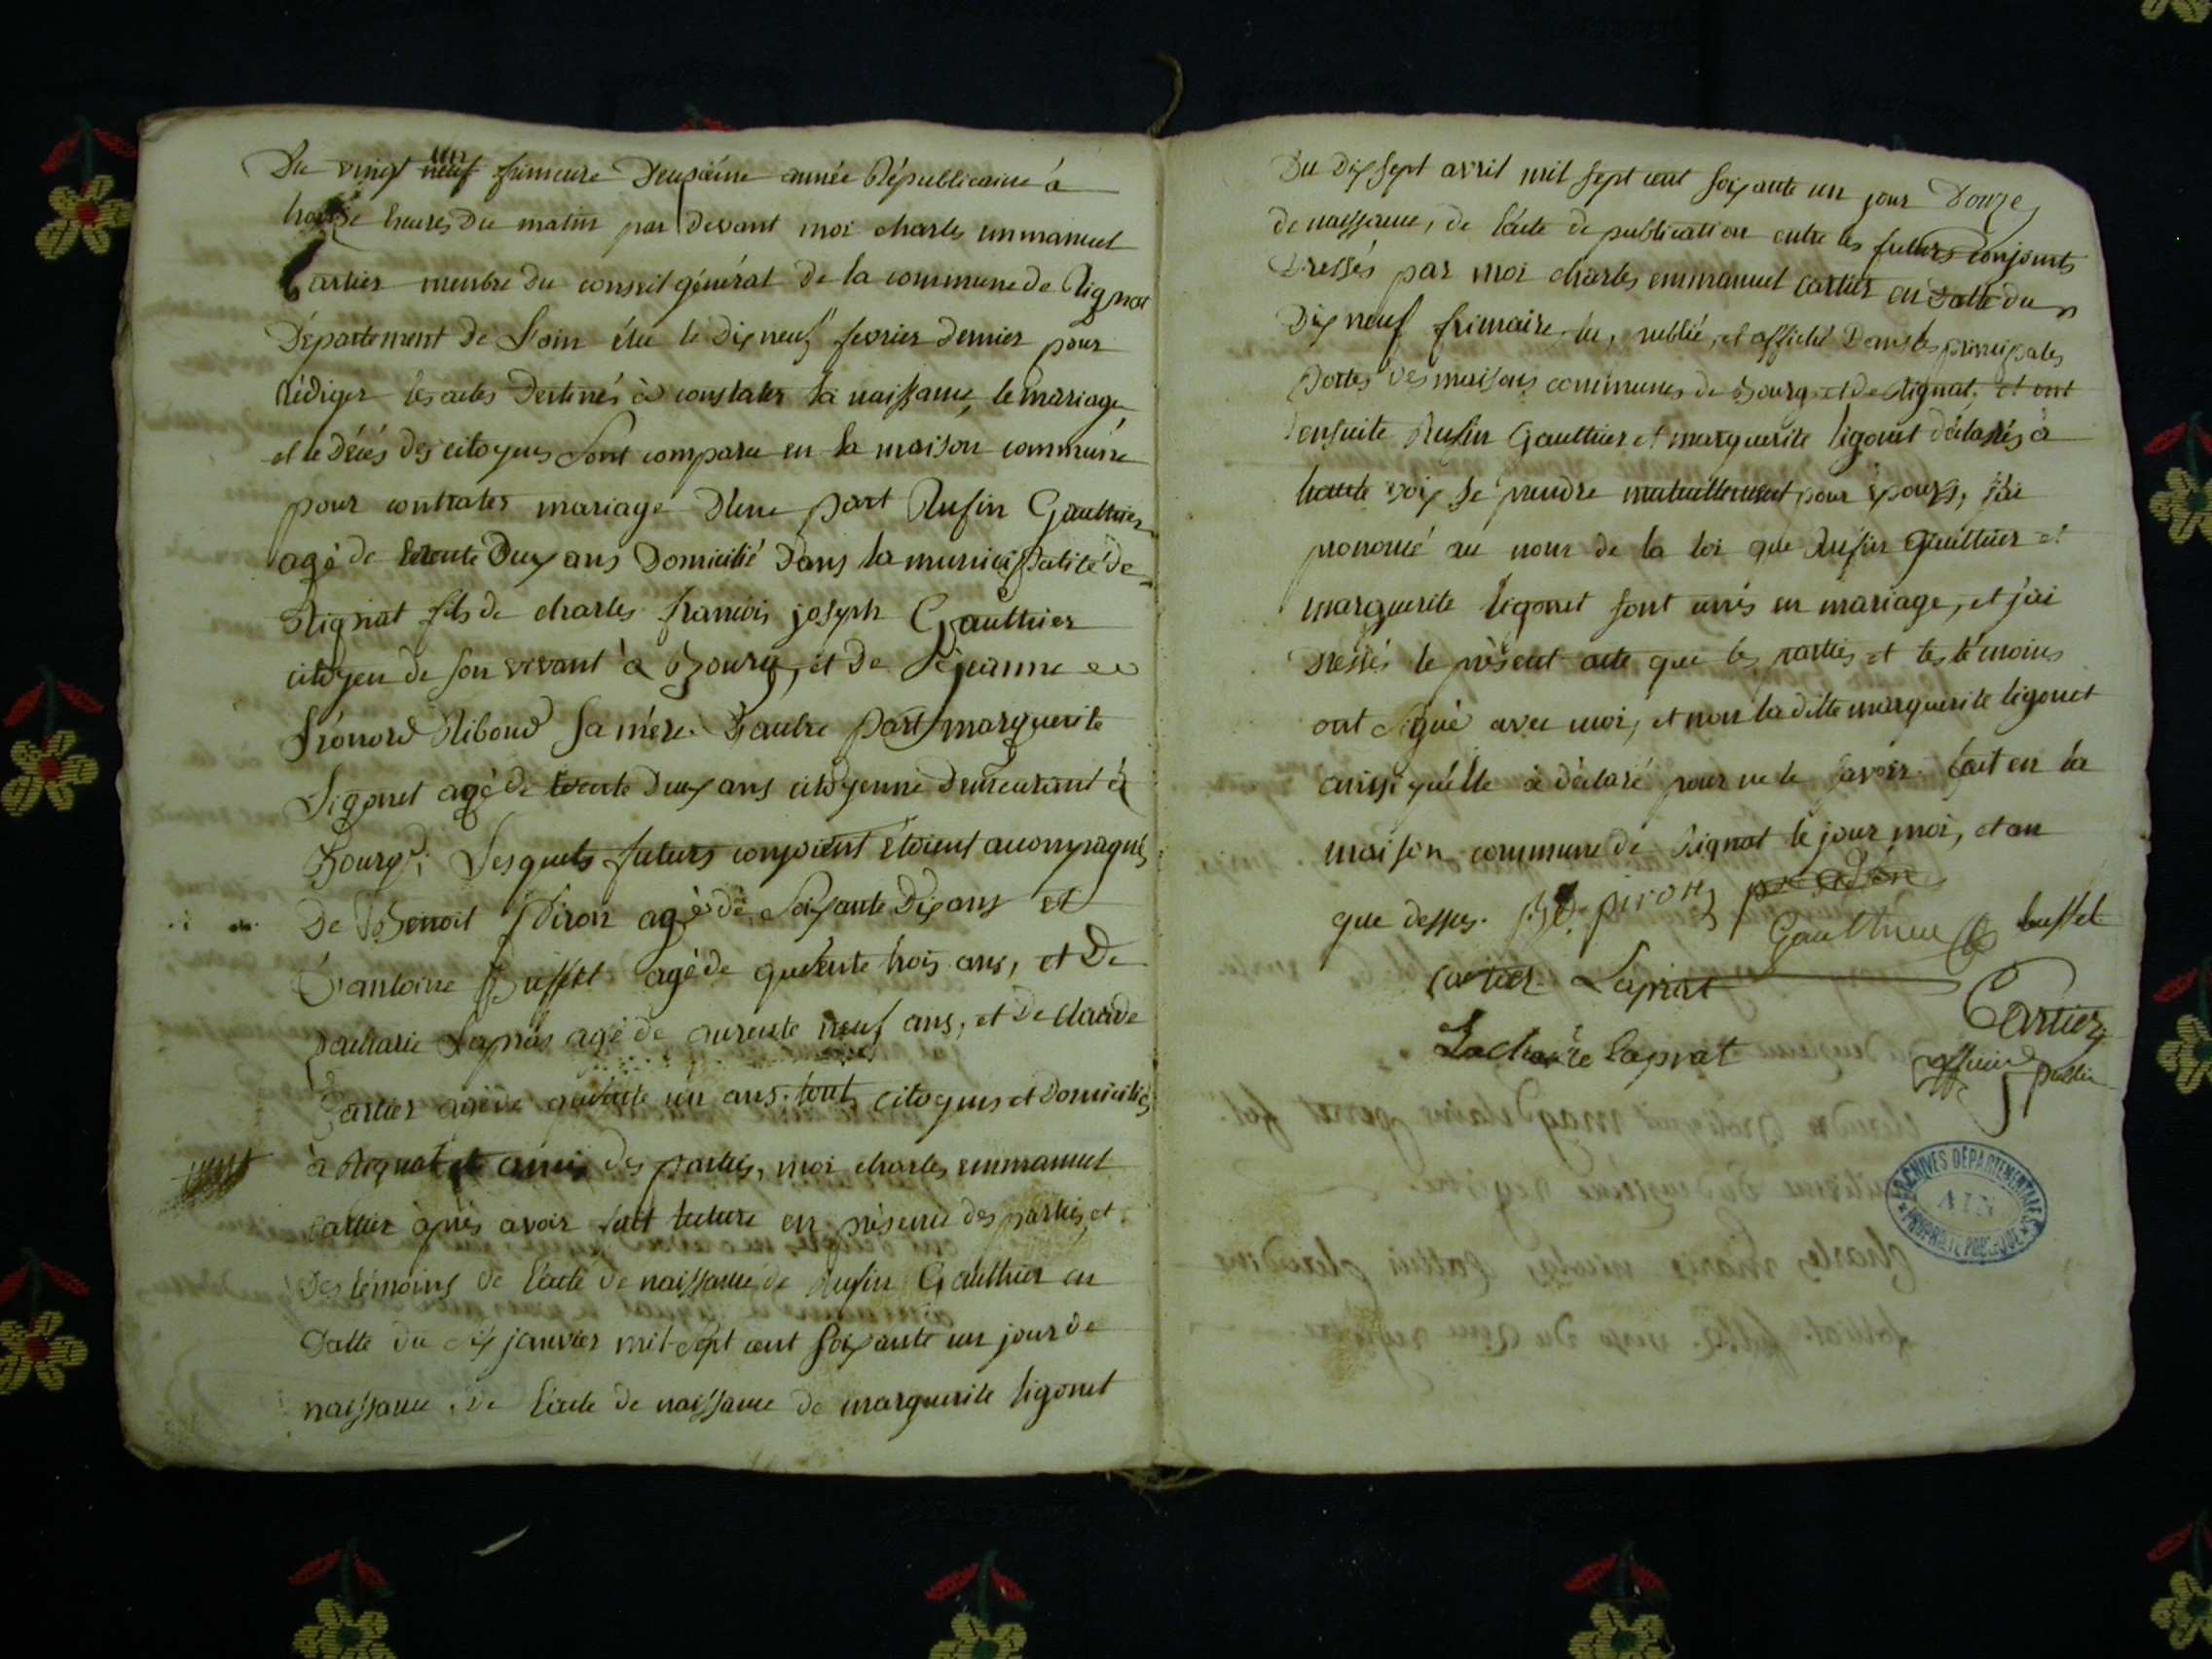 Du vingt un frimeire Deuxséme année Républicaine à
heures du matin par devant moi charles emmanuel
Cartier menbre du conseil général de la commune de Rignat
Département de L'ain élu le dix neuf fevrier dernier pour
rédiger les actes destinés à constater la naissance, le mariage
et le décés des citoyens sont comparu en la maison commune
pour contrater mariage d'une part Rufin Gaulthier
agé de trente deux ans domicilié dans la municipalité de
Rignat fils de charles francois joseph Gaulthier
citoyen de son vivant à Bourg, et de jeanne
Riboud sa mére. D'autre part marguerite
Ligonet agé de trente deux ans citoyenne demeurant à
Bourg; Lesquels futurs conjoient étoient acompagnés
De Benoit Piron agé de soixante dix ans et
D'antoine Buffet agé de quarente trois ans, et De
Zacharie Laprat agé de quarente neuf ans, et De claude
Cartier agé de quarente un ans. tout citoyens et domiciliés
à Rignat et amis des parties, moi charles emmanuel
cartier après avoir fait lecture en présence des parties, et
des témoins de l'acte de naissance de Rufin Gaulthier en
datte du six janvier mil sept cent soixante un jour de
naissance, de l'acte de naissance de marguerite ligonet
Du dix sept avril mil sept cent soixante un jour Donze
de naissance, de l'acte de publication entre les futurs conjoints
dressés par moi charles emmanuel cartier en datte du
dix neuf frimaire lu, publié, et affiché dans les principales
portes des maisons communes de Bourg et de Rignat, et ont
ensuite Rufin Gaulthier et marguerite ligonet déclarés à
haute voix se prendre mutuellement pour époux, j'ai
prononcé au nom de la loi que Rufin Gaulthier et
marguerite ligonet sont unis en mariage, et j'ai
dressés le présent acte que les parties et les témoins
ont signé avec moi, et non la ditte marguerite ligonet
ainsi qu'elle à déclaré pour ne le savoir. fait en la
maison commune de Rignat le jour, moi, et an
que dessus. piron
Gaulthier buffet
cartier Laprat
Cartier
Zacharie Laprat
officier public
ARCHIVES DÉPARTEMENTALES
AIN
PROPRIÉTÉ PUBLIQUE